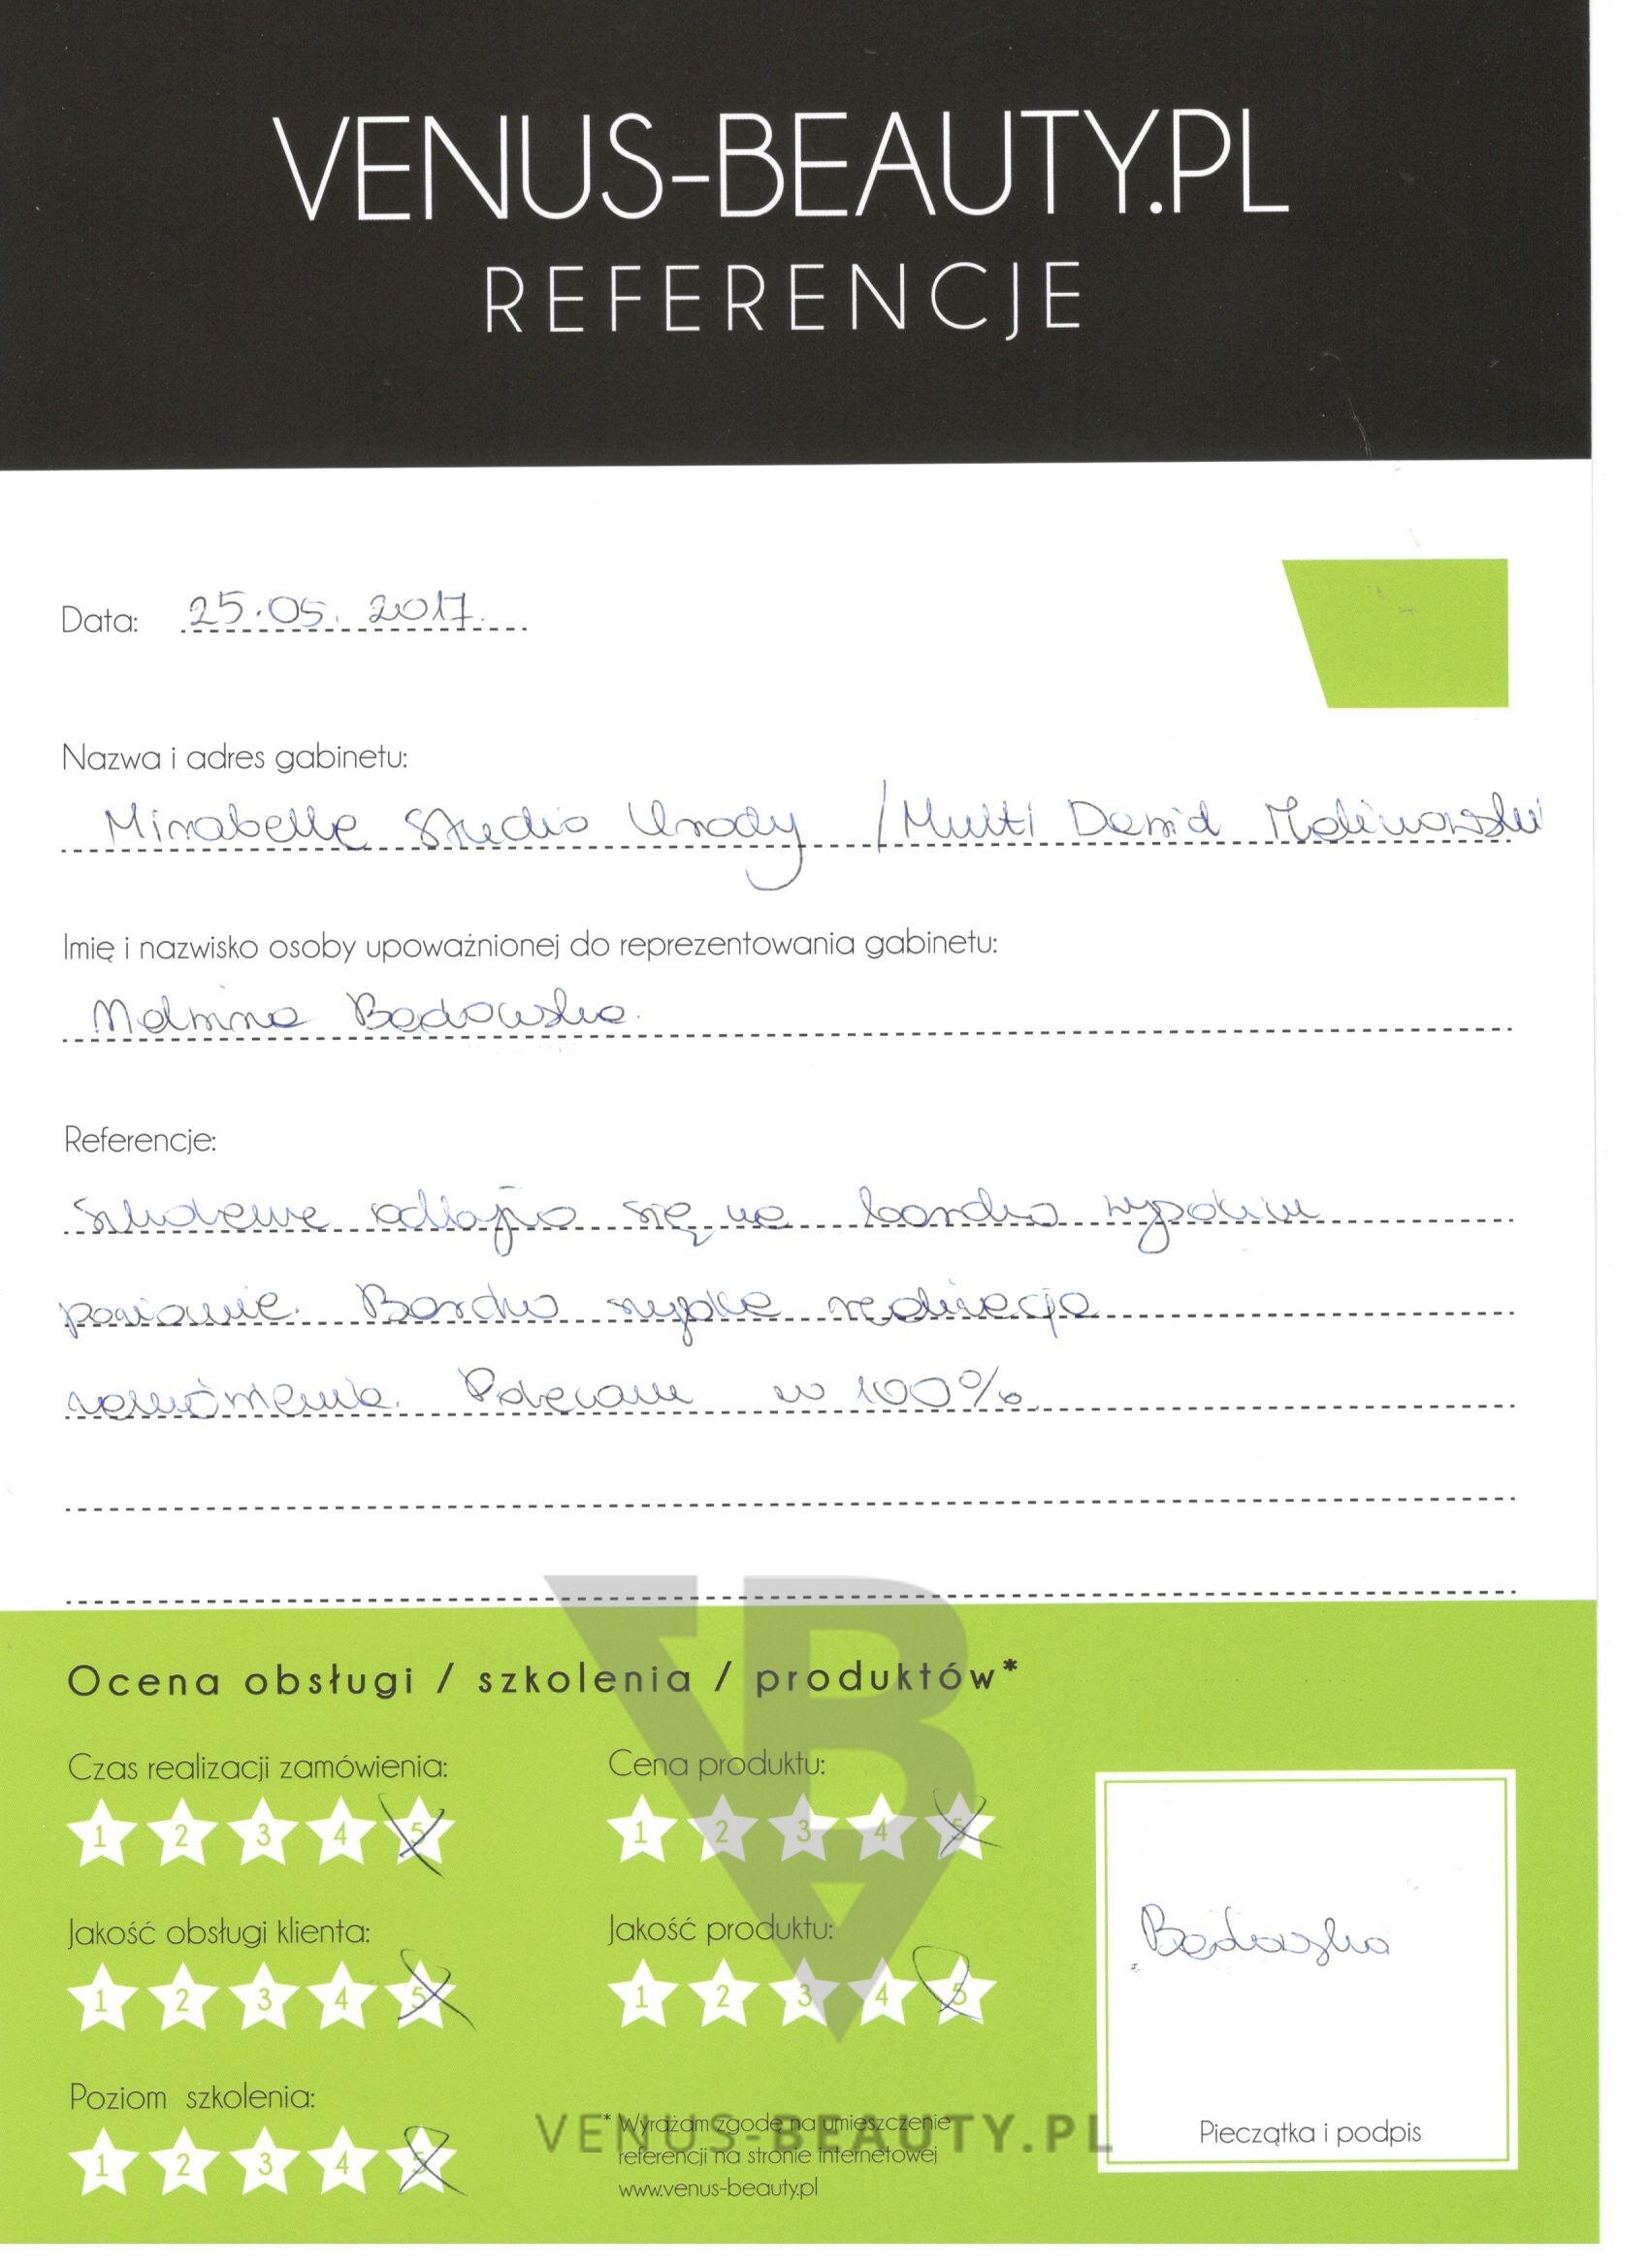 VENUS-BEAUTY.PL
REFERENCJE
Data: 25.05.2017.
Nazwa i adres gabinetu:
Mirabelle Studio Urody / Multi Dawid Malinowski
Imię i nazwisko osoby upoważnionej do reprezentowania gabinetu:
Malwina Badowska
Referencje:
Szkolenie odbyło się na bardzo wysokim
poziomie. Bardzo szybka realizacja
zamówienia. Polecam w 100%.
Ocena obsługi / szkolenia / produktów*
Czas realizacji zamówienia: Cena produktu:
1 2 3 4 5 1 2 3 4 5
Jakość obsługi klienta: Jakość produktu:
1 2 3 4 5 1 2 3 4 5
Badowska
Poziom szkolenia:
1 2 3 4 5
* Wyrażam zgodę na umieszczenie
referencji na stronie internetowej
www.venus-beauty.pl
Pieczątka i podpis
VBA
VENUS-BEAUTY.PL